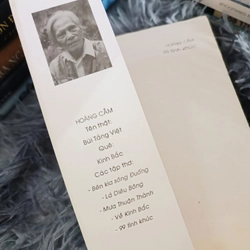 HOÀNG CẦM
Tên thật:
Bùi Tằng Việt
Quê:
Kinh Bắc
Các tập thơ:
- Bên kia sông Đuống
- Lá Diêu Bông
- Mưa Thuận Thành
- Về Kinh Bắc
- 99 tình khúc
HOÀNG CẦM
99 tình khúc